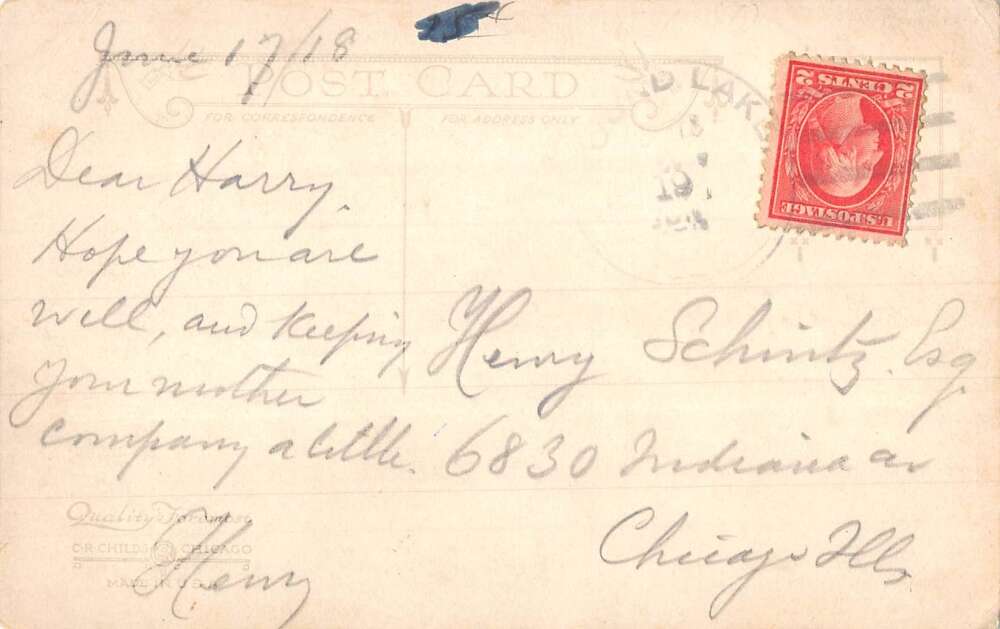 June 17/18
25¢
POST CARD
FOR CORRESPONDENCE
FOR ADDRESS ONLY
D LAKE
19
2 CENTS 2
U.S. POSTAGE
Dear Harry,
Hope you are
well, and keeping
your mother
company a little.
Henry
Henry Schintz. Esq.
6830 Indiana av
Chicago Ills
Quality Foremost
C.R. CHILDS CHICAGO
MADE IN U.S.A.